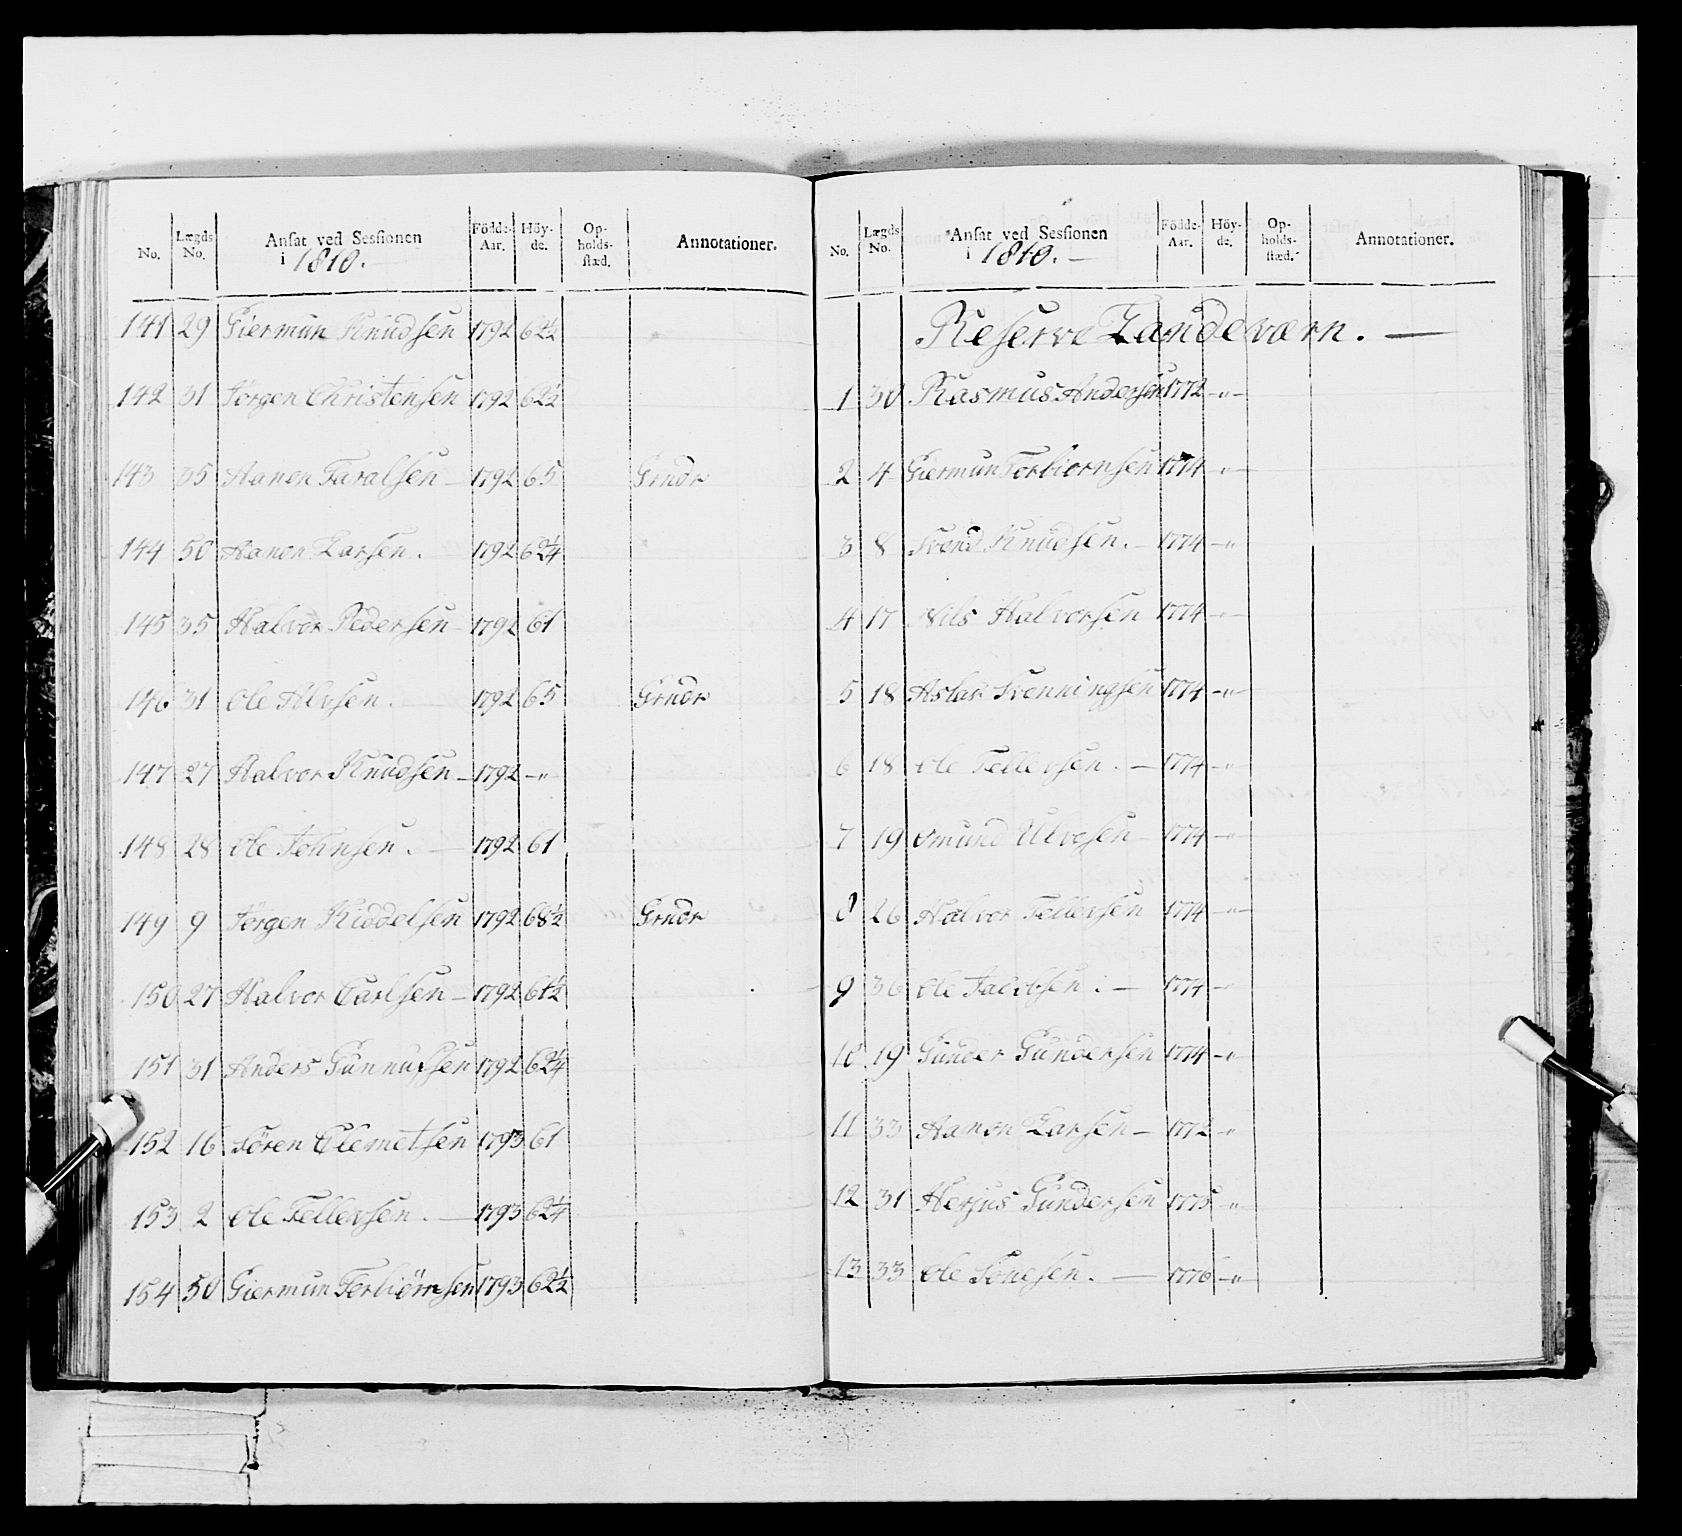 No. Lægds No. Ansat ved Sessionen i 1810. Födde-Aar. Höy-de. Op-holds-stæd. Annotationer.
141 29 Giermun Knudsen 1792 62½
142 31 Jørgen Christensen 1792 62½
143 35 Aanon Taralsen 1792 65 Grndr
144 50 Aanon Larsen. 1792 62¼
145 35 Halvor Pedersen 1792 61
146 31 Ole Alvsen. 1792 65 Grndr
147 27 Halvor Knudsen 1792 -"-
148 28 Ole Johnsen. 1792 61
149 9 Jørgen Kiddelsen 1792 68½ Grndr
150 27 Halvor Carlsen 1792 61½
151 31 Anders Gunnufsen 1792 62¼
152 16 Sören Clemetsen 1793 61
153 2 Ole Tellevsen. 1793 62¼
154 50 Giermun Torbiörnsen 1793 62½
No. Lægds No. Ansat ved Sessionen i 1810. Födde-Aar. Höy-de. Op-holds-stæd. Annotationer.
Reserve Landeværn.
1 30 Rasmus Andersen 1772 -"-
2 4 Giermun Torbiornsen 1774 -"-
3 8 Svend Knudsen. 1774 -"-
4 17 Nils Halvorsen 1774 -"-
5 18 Aslak Svenningsen 1774 -"-
6 18 Ole Tellevsen. 1774 -"-
7 19 Omund Ulvesen 1774 -"-
8 26 Halvor Tellevsen 1774 -"-
9 36 Ole Jacobsen. 1774 -"-
10 19 Gunder Gundersen 1774 -"-
11 33 Aanon Larsen 1772 -"-
12 31 Herjus Gundersen 1775 -"-
13 33 Ole Tonesen. 1776 -"-